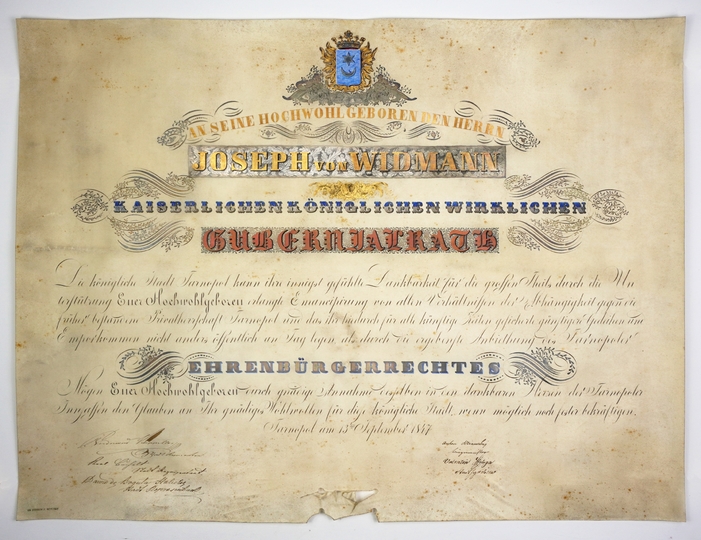 AN SEINE HOCHWOHLGEBOREN DEN HERRN
JOSEPH VON WIDMANN
KAISERLICHEN KÖNIGLICHEN WIRKLICHEN
GUBERNIALRATH
Die königliche Stadt Tarnopol kann ihre innigst gefühlte Dankbarkeit für die großen Theils durch die Un
terstützung Euer Hochwohlgeboren erlangte Emancipirung von allen Verhältnissen der Abhängigkeit gegen die
früher bestandene Privatherrschaft Tarnopol um das ihr dadurch für alle künftige Zeiten gesicherte günstigere Gedeihen und
Emporkommen nicht anders öffentlich an Tag legen als durch die ergebenste Anbiethung des Tarnopoler
EHRENBÜRGERRECHTES
Mögen Euer Hochwohlgeboren durch gnädige Annahme desselben in den dankbaren Herzen der Tarnopoler
Innsassen den Glauben an Ihr gnädiges Wohlwollen für diese königliche Stadt, wenn möglich noch fester bekräftigen.
Tarnopol am 15 September 1847